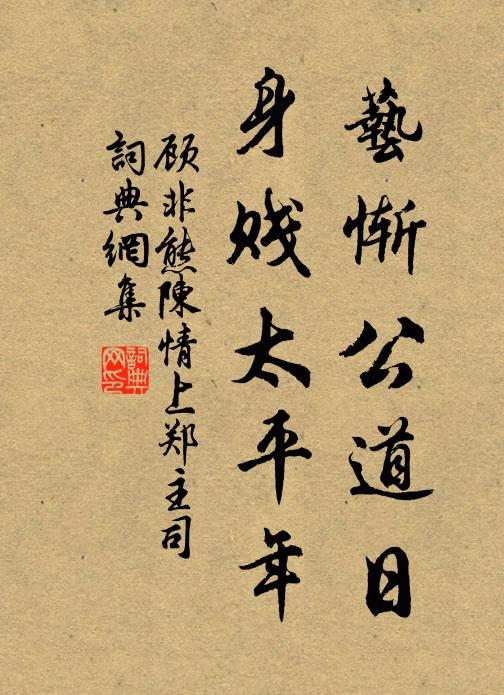 藝慚公道日
身賤太平年
顾非熊陳情上郑主司
詞典網集
詞典
网印